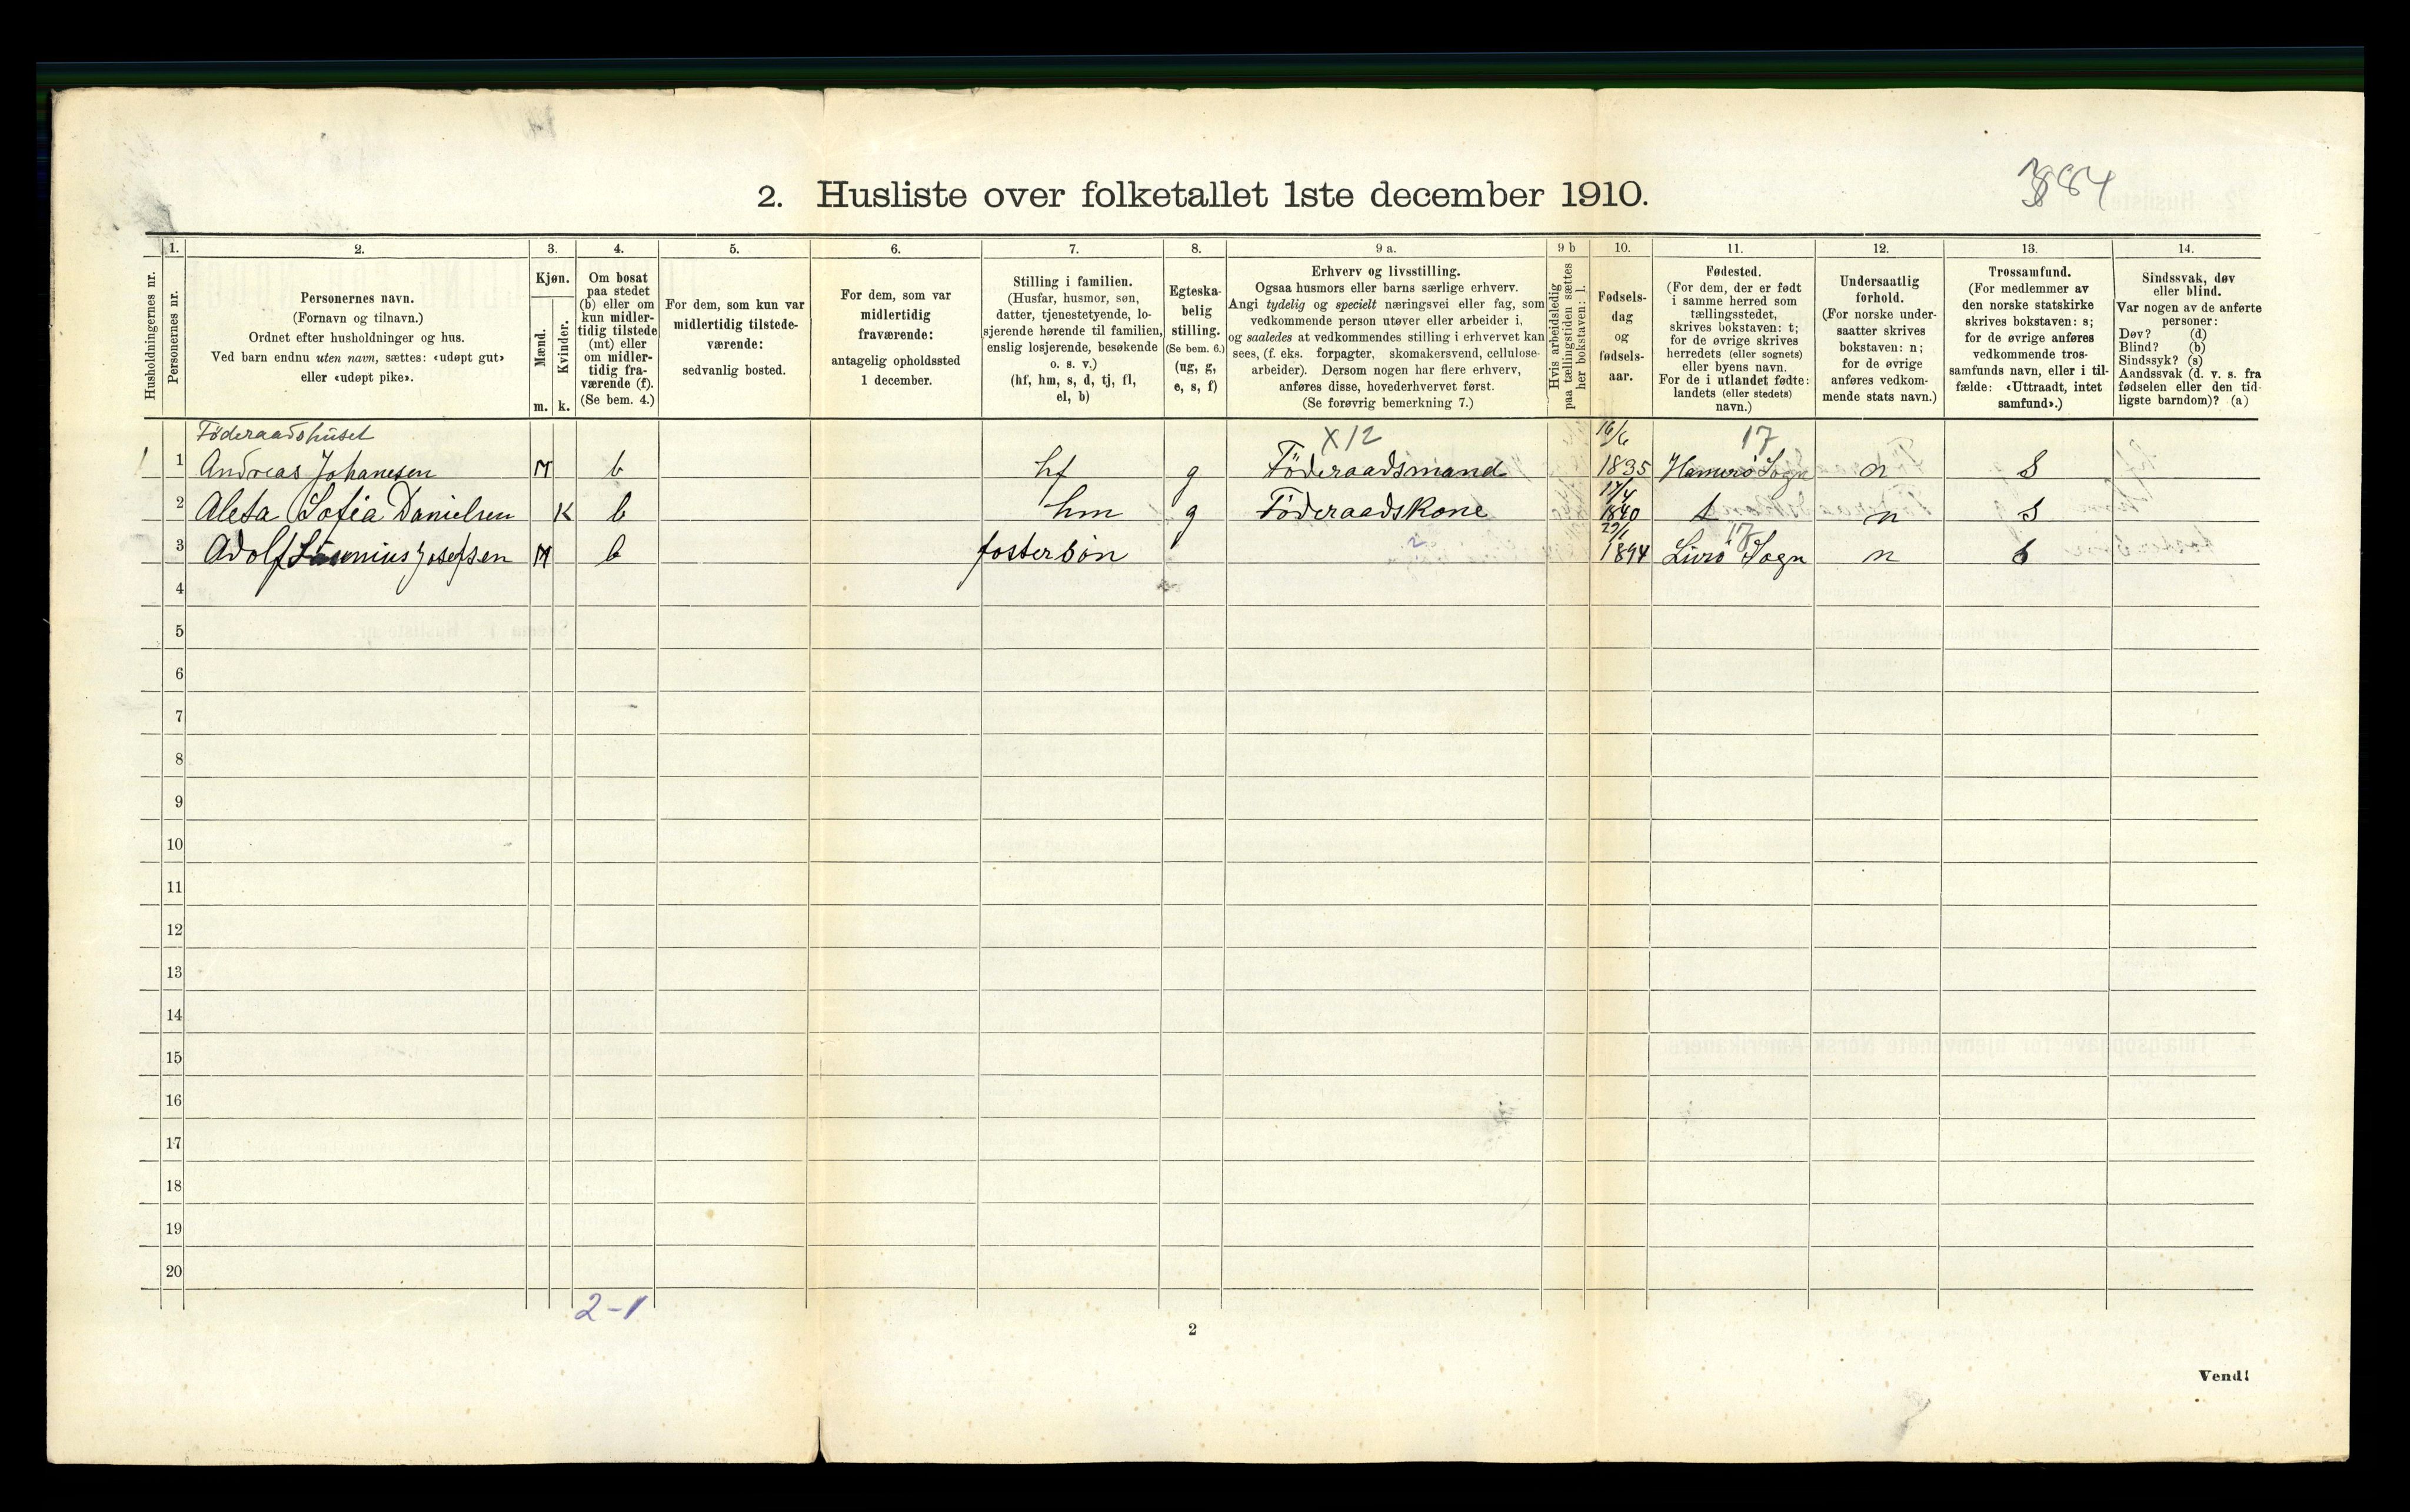 884
2. Husliste over folketallet 1ste december 1910.
Husholdningernes nr.
1.
Personernes nr.
2.
Personernes navn.
(Fornavn og tilnavn.)
Ordnet efter husholdninger og hus.
Ved barn endnu uten navn, sættes: «udøpt gut»
eller «udøpt pike».
3.
Kjøn.
Mænd.
Kvinder.
m. k.
4.
Om bosat
paa stedet
(b) eller om
kun midler-
tidig tilstede
(mt) eller
om midler-
tidig fra-
værende (f).
(Se bem. 4.)
5.
For dem, som kun var
midlertidig tilstede-
værende:
sedvanlig bosted.
6.
For dem, som var
midlertidig
fraværende:
antagelig opholdssted
1 december.
7.
Stilling i familien.
(Husfar, husmor, søn,
datter, tjenestetyende, lo-
sjerende hørende til familien,
enslig losjerende, besøkende
o. s. v.)
(hf, hm, s, d, tj, fl,
el, b)
8.
Egteska-
belig
stilling.
(Se bem. 6.)
(ug, g,
e, s, f)
9 a.
Erhverv og livsstilling.
Ogsaa husmors eller barns særlige erhverv.
Angi tydelig og specielt næringsvei eller fag, som
vedkommende person utøver eller arbeider i,
og saaledes at vedkommendes stilling i erhvervet kan
sees, (f. eks. forpagter, skomakersvend, cellulose-
arbeider). Dersom nogen har flere erhverv,
anføres disse, hovederhvervet først.
(Se forøvrig bemerkning 7.)
9 b
Hvis arbeidsledig
paa tællingstiden sættes
her bokstaven: l.
10.
Fødsels-
dag
og
fødsels-
aar.
11.
Fødested.
(For dem, der er født
i samme herred som
tællingsstedet,
skrives bokstaven: t;
for de øvrige skrives
herredets (eller sognets)
eller byens navn.
For de i utlandet fødte:
landets (eller stedets)
navn.)
12.
Undersaatlig
forhold.
(For norske under-
saatter skrives
bokstaven: n;
for de øvrige
anføres vedkom-
mende stats navn.)
13.
Trossamfund.
(For medlemmer av
den norske statskirke
skrives bokstaven: s;
for de øvrige anføres
vedkommende tros-
samfunds navn, eller i til-
fælde: «Uttraadt, intet
samfund».)
14.
Sindssvak, døv
eller blind.
Var nogen av de anførte
personer:
Døv? (d)
Blind? (b)
Sindssyk? (s)
Aandssvak (d. v. s. fra
fødselen eller den tid-
ligste barndom)? (a)
Föderaadshuset X12 16/6 17
1 Andreas Johanesen M b hf g Föderaadsmand 1835 Hamerö Sogn n S
2 Aleta Sofia Danielsen K b hm g Föderaadskone 17/4 1840 t n S
3 Adolf Josefsen M b fosterson 29/1 1894 17 Sogn n S
4
5
6
7
8
9
10
11
12
13
14
15
16
17
18
19
20
2-1
2
Vend!